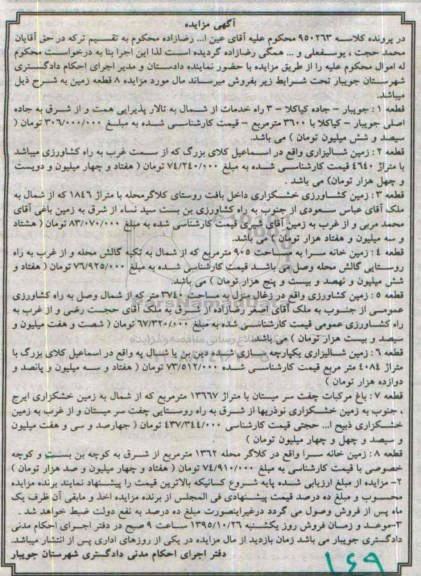 آگهی مزایده
در پرونده کلاسه ۹۵۰۲۶۳ محکوم علیه آقای عین ا... رضازاده محکوم به تقسیم ترکه در حق آقایان
محمد حجت ، یوسفعلی و ... همگی رضازاده گردیده است لذا این اجرا بنا به درخواست محکوم
له اموال محکوم علیه را از طریق مزایده با حضور نماینده دادستان و مدیر اجرای احکام دادگستری
شهرستان جویبار تحت شرایط زیر بفروش میرساند مال مورد مزایده ۸ قطعه زمین به شرح ذیل
میباشد.
قطعه ۱: جویبار - جاده کیاکلا - ۳ راه خدمات از شمال به تالار پذیرایی همت و از شرق به جاده
اصلی جویبار - کیاکلا با ۳۶۰۰ مترمربع - قیمت کارشناسی شده به مبلغ ۳۰۶/۰۰۰/۰۰۰ تومان (
سیصد و شش میلیون تومان ) می باشد.
قطعه ۲: زمین شالیزاری واقع در اسماعیل کلای بزرگ که از سمت غرب به راه کشاورزی میباشد
با متراژ ۴۶۴۰ قیمت کارشناسی شده به مبلغ ۷۴/۲۴۰/۰۰۰ تومان ( هفتاد و چهار میلیون و دویست
و چهل هزار تومان) می باشد .
قطعه ۳: زمین کشاورزی خشکزاری داخل بافت روستای کلاگرمحله با متراژ ۱۸۴۶ که از شمال به
ملک آقای عباس سعودی از جنوب به راه کشاورزی بن بست سید نساء از شرق به زمین باغی آقای
محمد مربی و از غرب به زمین آقای نصیری قیمت کارشناسی شده به مبلغ ۸۳/۰۷۰/۰۰۰ تومان ( هشتاد
و سه میلیون و هفتاد هزار تومان ) می باشد.
قطعه ۴: زمین خانه سرا به مساحت ۹۰۵ مترمربع که از شمال به تکیه گالش محله و از غرب به راه
روستایی گالش محله وصل می باشد قیمت کارشناسی شده به مبلغ ۷۶/۹۲۵/۰۰۰ تومان ( هفتاد و
شش میلیون و نهصد و بیست و پنج هزار تومان) می باشد.
قطعه ۵: زمین کشاورزی واقع در زغال منزل به مساحت ۳۷۴۰ متر که از شمال وصل به راه کشاورزی
عمومی از جنوب به ملک آقای اصغر رضازاده از شرق به ملک آقای حجت رضی و از غرب به
راه کشاورزی عمومی قیمت کارشناسی شده به مبلغ ۶۷/۳۲۰/۰۰۰ تومان ( شصت و هفت میلیون و
سیصد و بیست هزار تومان ) می باشد.
قطعه ۶: زمین شالیزاری یکپارچه سازی شده دین بن یا شال په واقع در اسماعیل کلای بزرگ با
متراژ ۴۰۸۴ متر مربع قیمت کارشناسی شده به مبلغ ۷۳/۵۱۲/۰۰۰ تومان ( هفتاد و سه میلیون و پانصد و
دوازده هزار تومان )
قطعه ۷: باغ مرکبات چفت سر میستان با متراژ ۱۳۶۶۷ مترمربع که از شمال به زمین خشکزاری ایرج
، جنوب به زمین خشکزاری نوذریها از شرق به راه روستایی چفت سر میستان و از غرب به زمین
خشکزاری ذبیح ا... حجتی قیمت کارشناسی شده ۴۳۷/۳۴۴/۰۰۰ تومان ( چهارصد و سی و هفت میلیون
و سیصد و چهل و چهار میلیون تومان )
قطعه ۸: زمین خانه سرا واقع در کلاگر محله ۱۳۶۲ مترمربع از شرق به کوچه بن بست و کوچه
خصوصی با قیمت کارشناسی به مبلغ ۷۴/۹۱۰/۰۰۰ تومان ( هفتاد و چهار میلیون و صد هزار تومان )
۲- مزایده از مبلغ ارزیابی شده پایه شروع کسانیکه بالاترین قیمت را پیشنهاد نمایند برنده مزایده
محسوب و مبلغ ده درصد قیمت پیشنهادی فی المجلس از برنده مزایده اخذ و مابقی آن ظرف یک
ماه پس از فروش وصول می گردد درغیراینصورت مبلغ ده درصد به نفع دولت ضبط خواهد شد .
۳-موعد و زمان فروش روز یکشنبه ۱۳۹۵/۱۰/۲۶ ساعت ۹ صبح در دفتر اجرای احکام مدنی
دادگستری جویبار می باشد زمان بازدید از مال مزایده در یکی از روزهای اداری پس از انتشار میباشد.
دفتر اجرای احکام مدنی دادگستری شهرستان جویبار
۱۶۹